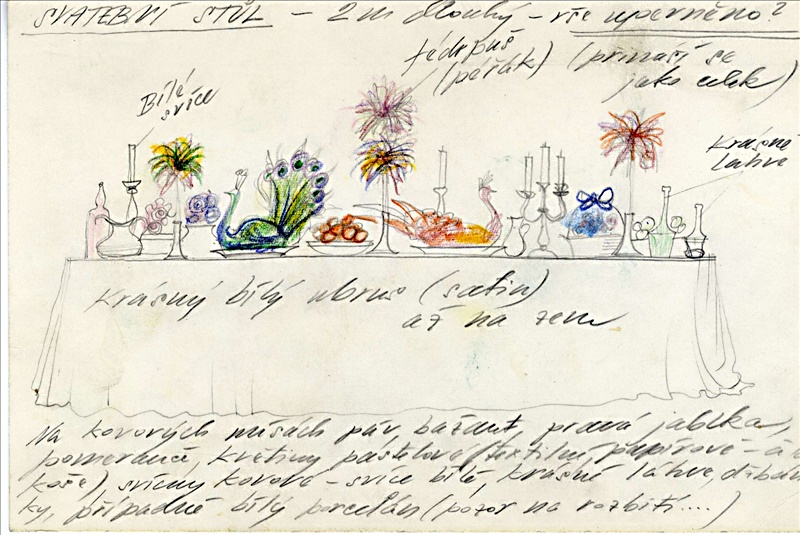 SVATEBNÍ STŮL - 2m dlouhý - vše upevněno?
(přináší se
jako celek)
Bílé
svíce
Krásné
láhve
Krásný bílý ubrus (satin)
až na zem
Na kovových mísách páv, bažant, pravá jablka,
pomeranče, květiny pastelové (textilní, papírové - a
koše), svícny kovové - svíce bílé, krásné láhve, džbán
ky, případně bílý porcelán (pozor na rozbití....)